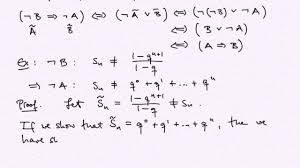 (¬B ⇒ ¬A) ⇔ (¬Ã ∨ B̃) ⇔ (¬(¬B) ∨ ¬A)
Ã B̃
⇔ (B ∨ ¬A)
⇔ (A ⇒ B)
Ex: ¬B: Sn ≠ (1-q^(n+1))/(1-q)
⇒ ¬A: Sn ≠ q^0 + q^1 + ... + q^n
Proof. Let S̃n = (1-q^(n+1))/(1-q) ≠ Sn.
If we show that S̃n = q^0 + q^1 + ... + q^n, the we
have